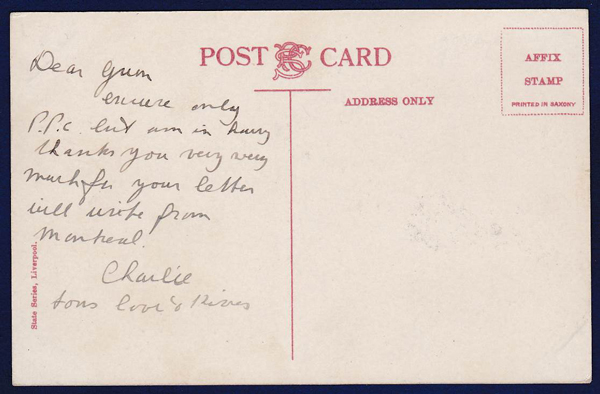 POST CARD
AFFIX
STAMP
PRINTED IN SAXONY
ADDRESS ONLY
Dear Gum
excuse only
P.P.C. but am in hurry
thanks you very very
much for your letter
will write from
Montreal.
Charlie
tons love & kisses
State Series, Liverpool.